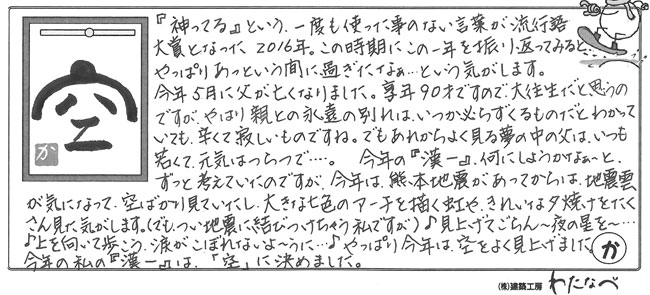 『神ってる』という、一度も使った事のない言葉が流行語
大賞となった 2016年。この時期にこの一年を振り返ってみると、
やっぱりあっという間に過ぎたなぁ…という気がします。
今年5月に父が亡くなりました。享年90才ですので、大往生だと思うの
ですが、やはり親との永遠の別れは、いつか必らずくるものだとわかって
いても、辛くて寂しいものですね。でもあれからよく見る夢の中の父は、いつも
若くて、元気はつらつで…。 今年の『漢一』、何にしようかなぁ〜と、
ずっと考えていたのですが、今年は、熊本地震があってからは、地震雲
が気になって、空ばかり見ていたし、大きな七色のアーチを描く虹や、きれいな夕焼けをたく
さん見た気がします。(でも、つい地震に結びつけちゃう私ですが)♪見上げてごらん〜夜の星を〜…
♪上を向いて歩こう、涙がこぼれないよ〜うに…♪やっぱり今年は、空をよく見上げました。
今年の私の『漢一』は、「空」に決めました。
空
か
か
(株)建築工房 わたなべ